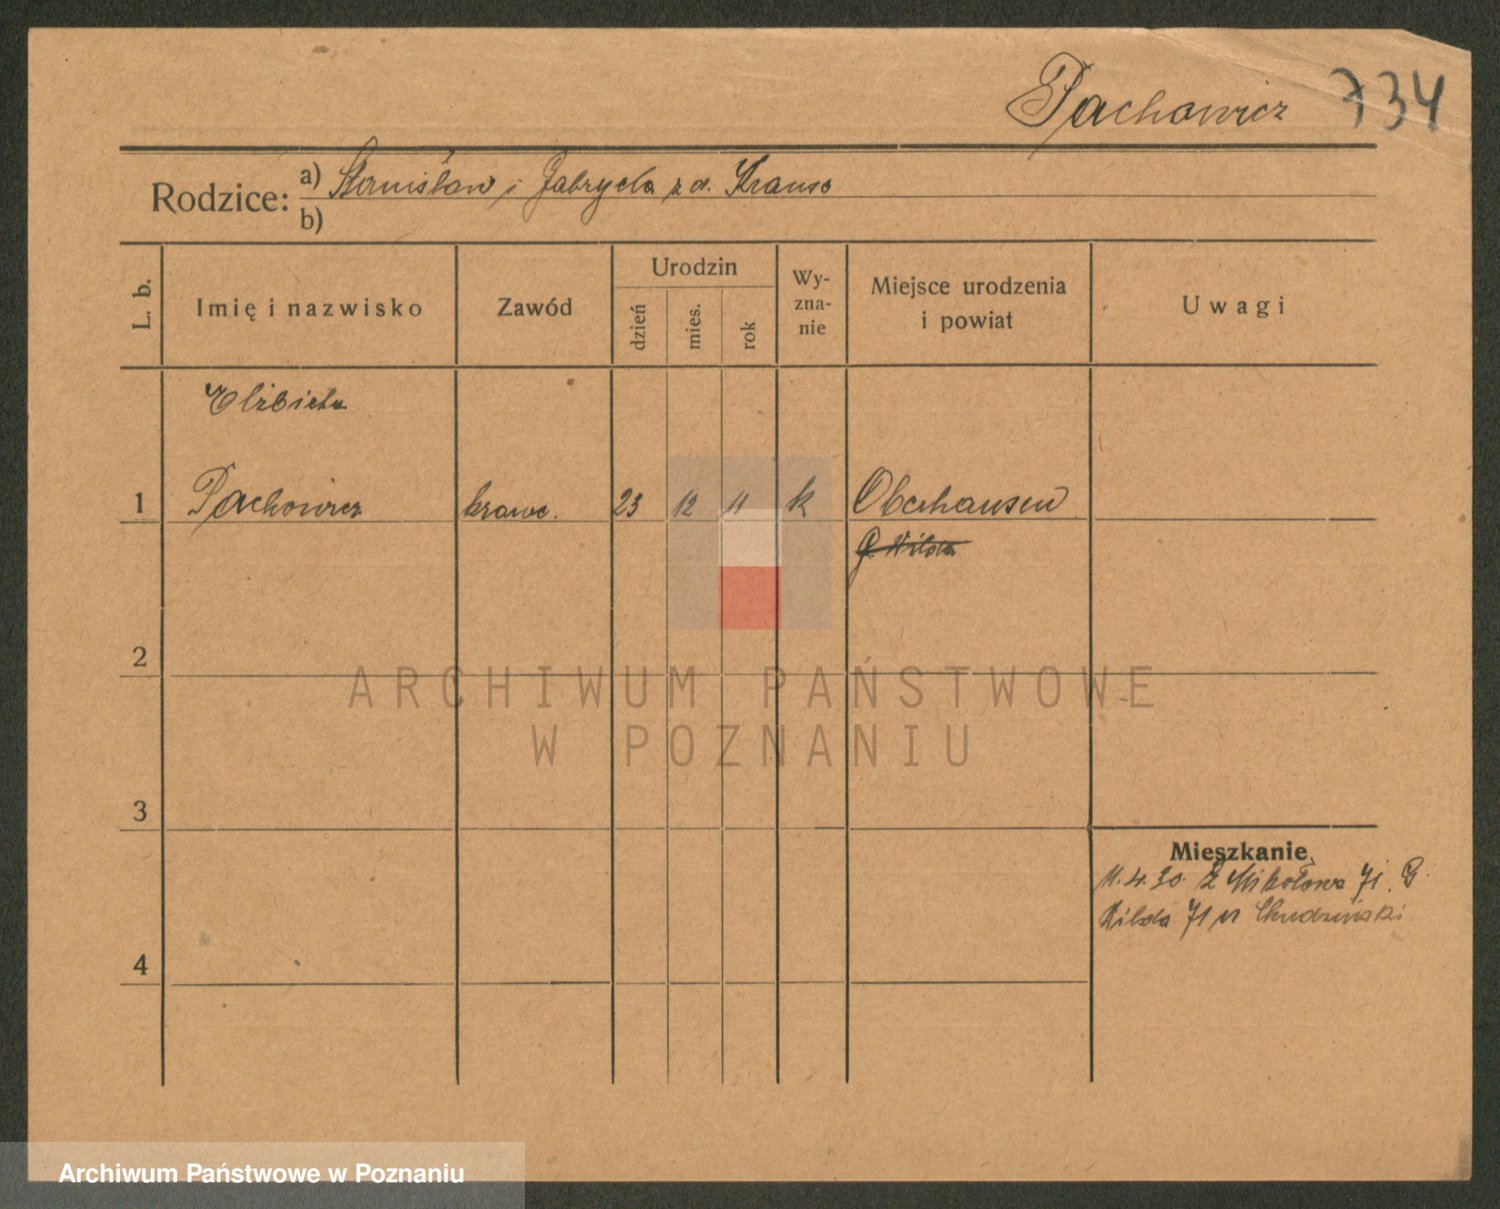 Pachowicz 734
Rodzice: a) Stanisław i Gabryela z d. Krause
b)
L. b.
Imię i nazwisko
Zawód
Urodzin
dzień
mies.
rok
Wy-
zna-
nie
Miejsce urodzenia
i powiat
Uwagi
Elżbieta
1 Pachowicz krawc. 23 12 11 k Oberhausen
G. Wilda
2
3
4
Mieszkanie
11.4.30. Z Mikołowa 71. G.
Wilda 71 Chudziński
ARCHIWUM PAŃSTWOWE
W POZNANIU
Archiwum Państwowe w Poznaniu